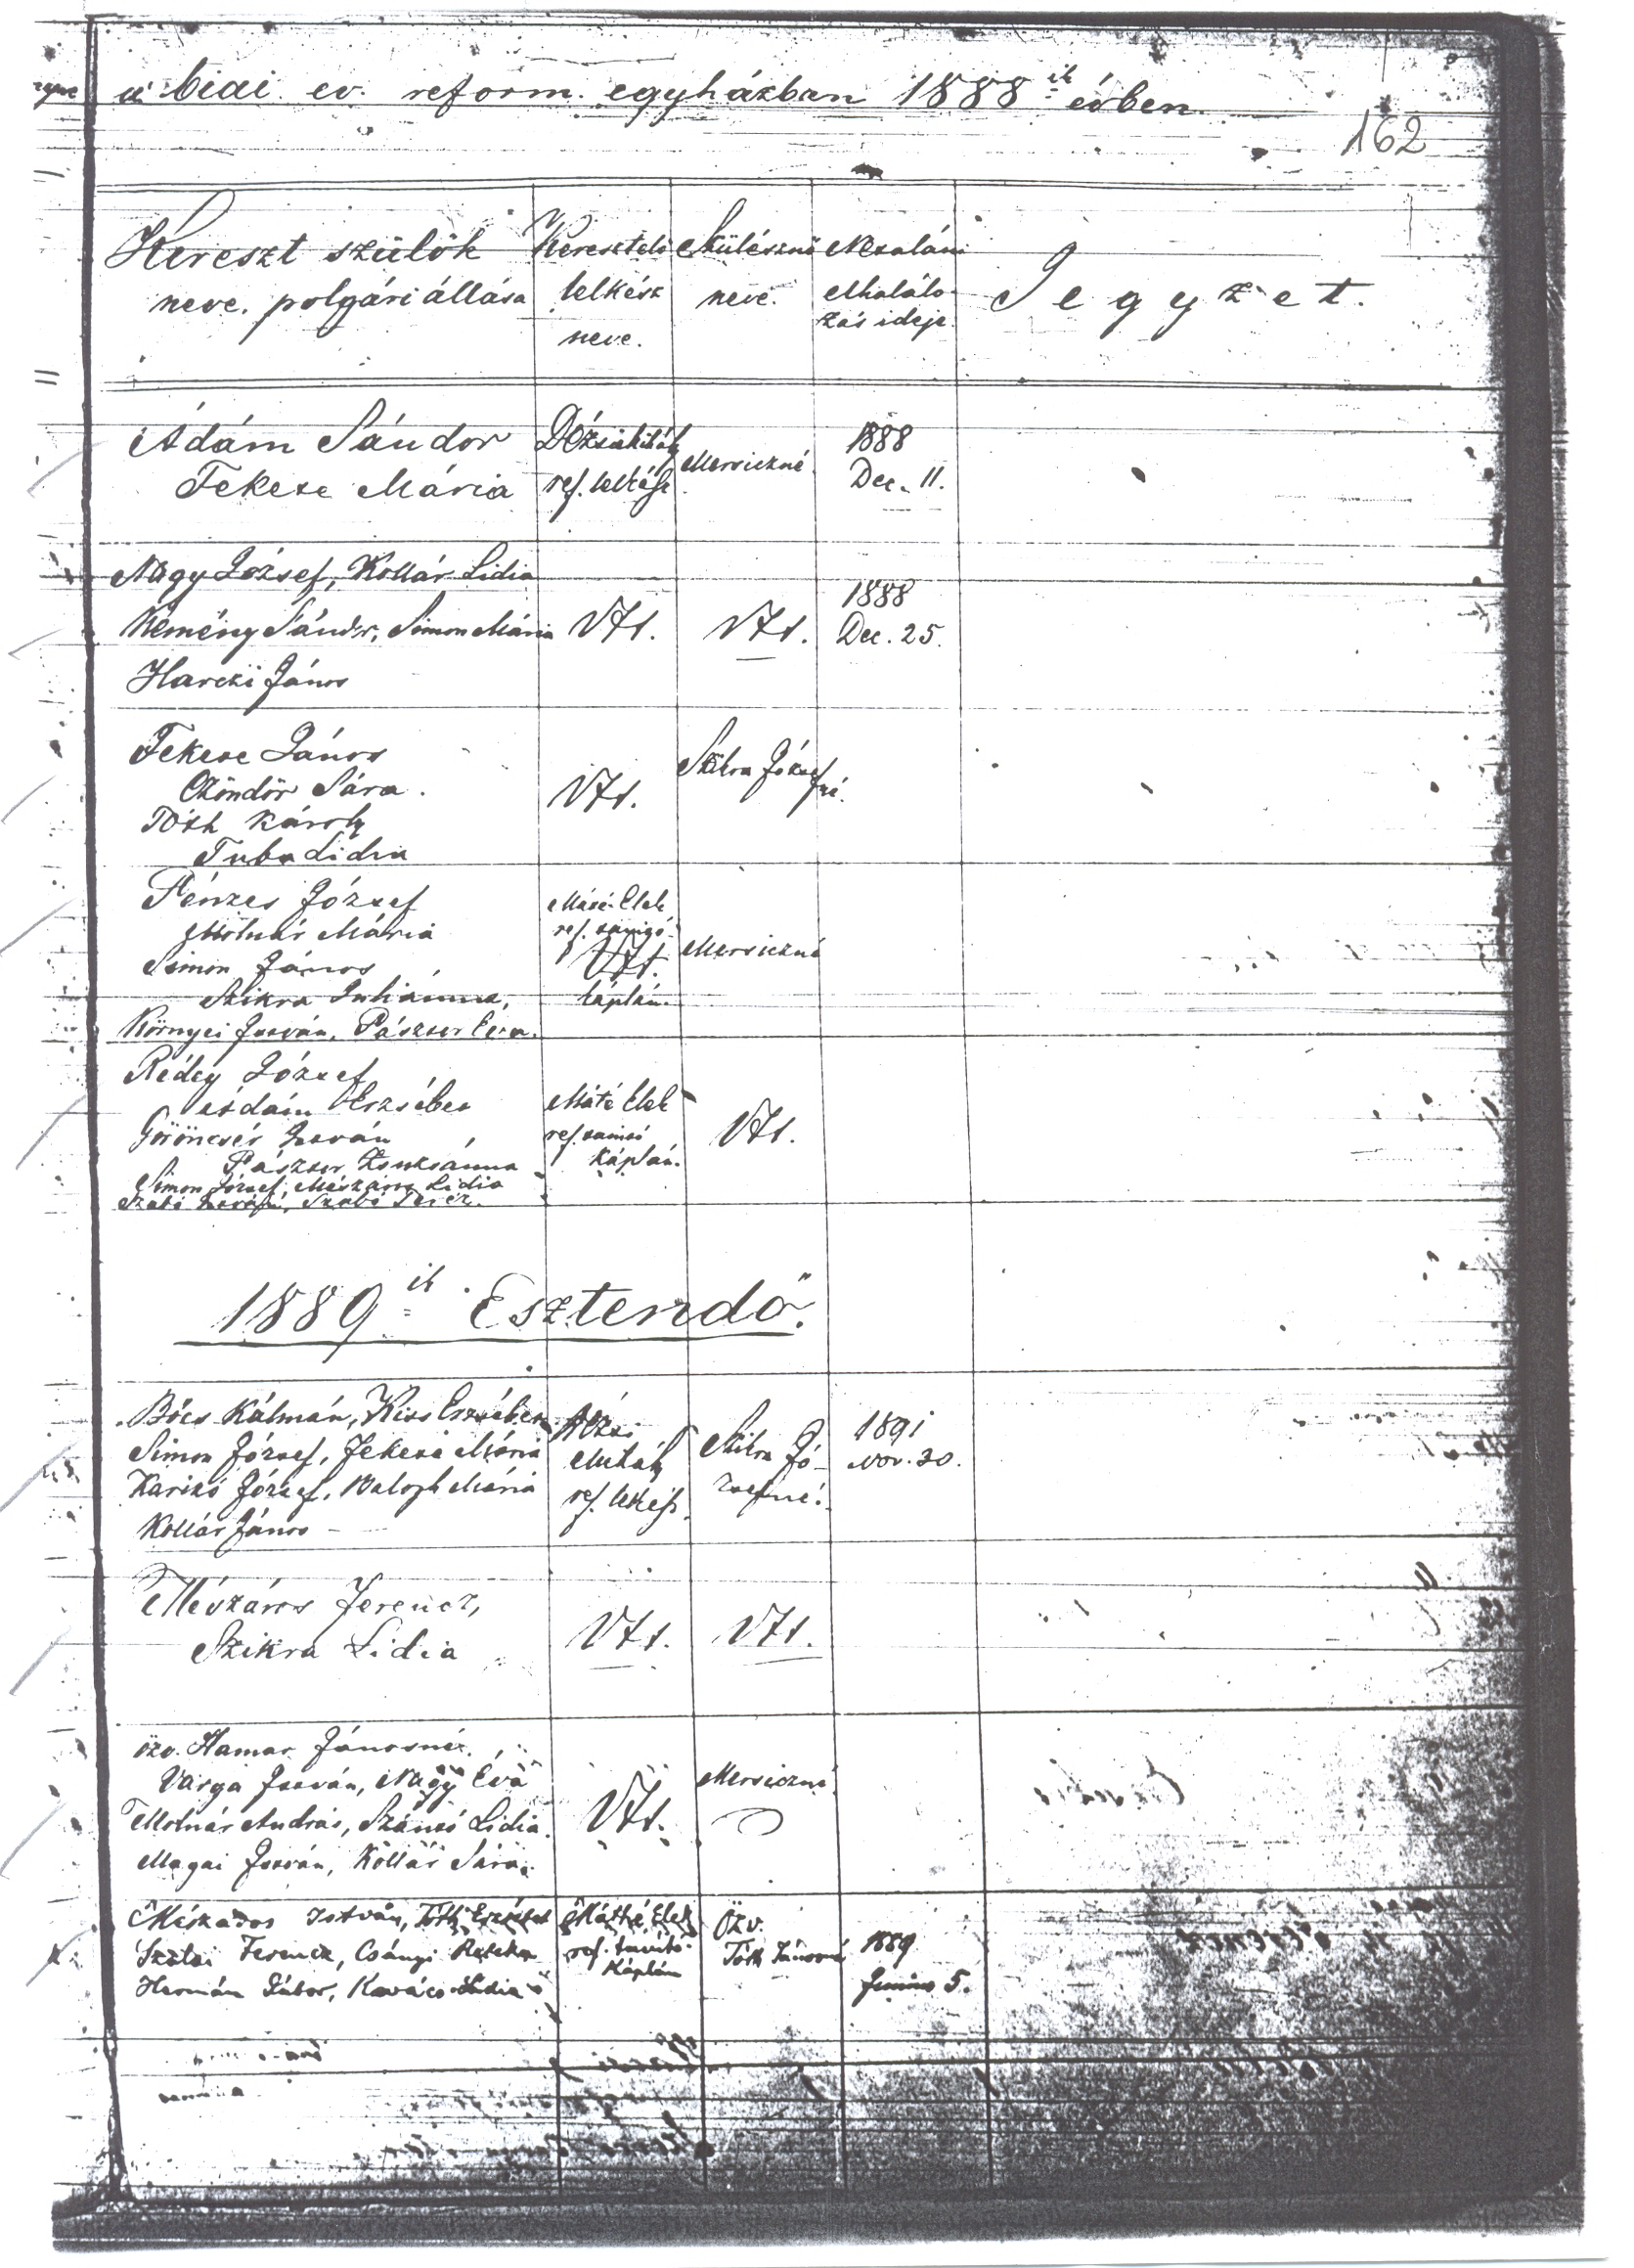 a biai ev. reform. egyházban 1888 ik évben.
162
Kereszt szülők
neve. polgári állása
Keresztelő
lelkész
neve.
Szülésznő
neve.
A halálozás ideje.
Jegyzet.
Ádám Sándor
Fekese Mária
ref. lelkész
Mersiczné
1888
Dec. 11.
Nagy József, Kollár Lidia
Kemény Sándor, Simon Mária
Harczi János
1888
Dec. 25.
Fekese János
Czöndör Sára.
Tóth Károly
Tuba Lidia
Szikra Józsefné.
Pénzes József
Molnár Mária
Simon János
Szikra Julianna,
Környei István, Pászter Éva.
Máté Elek
ref.
káplán.
Mersiczné
Rédey József
Ádám Erzsébet
Göröncsér István
Pászter Zsuzsánna
Simon József, Mészáros Lidia
Szabó Teréz.
Máté Elek
ref.
káplán.
1889 ik Esztendő.
Bőcs Kálmán, Kiss Erzsébet
Simon József, Fekese Mária
Karikó József, Balogh Mária
Kollár János
Mihály
ref. lelkész
Szikra Józsefné.
1891
Nov. 30.
Mészáros Ferencz,
Szikra Lidia
özv. Hamar Jánosné.
Varga István, Nagy Éva
Molnár András, Szántó Lidia.
Magai István, Kollár Sára.
Mersiczné
Mészáros István, Tóth Erzsébet
Ferencz, Csányi Rebeka
Hermán Gábor, Kovács Lidia
Máthé Elek
ref. segítő
káplán
Özv.
Tóth Jánosné
1889
Junius 5.